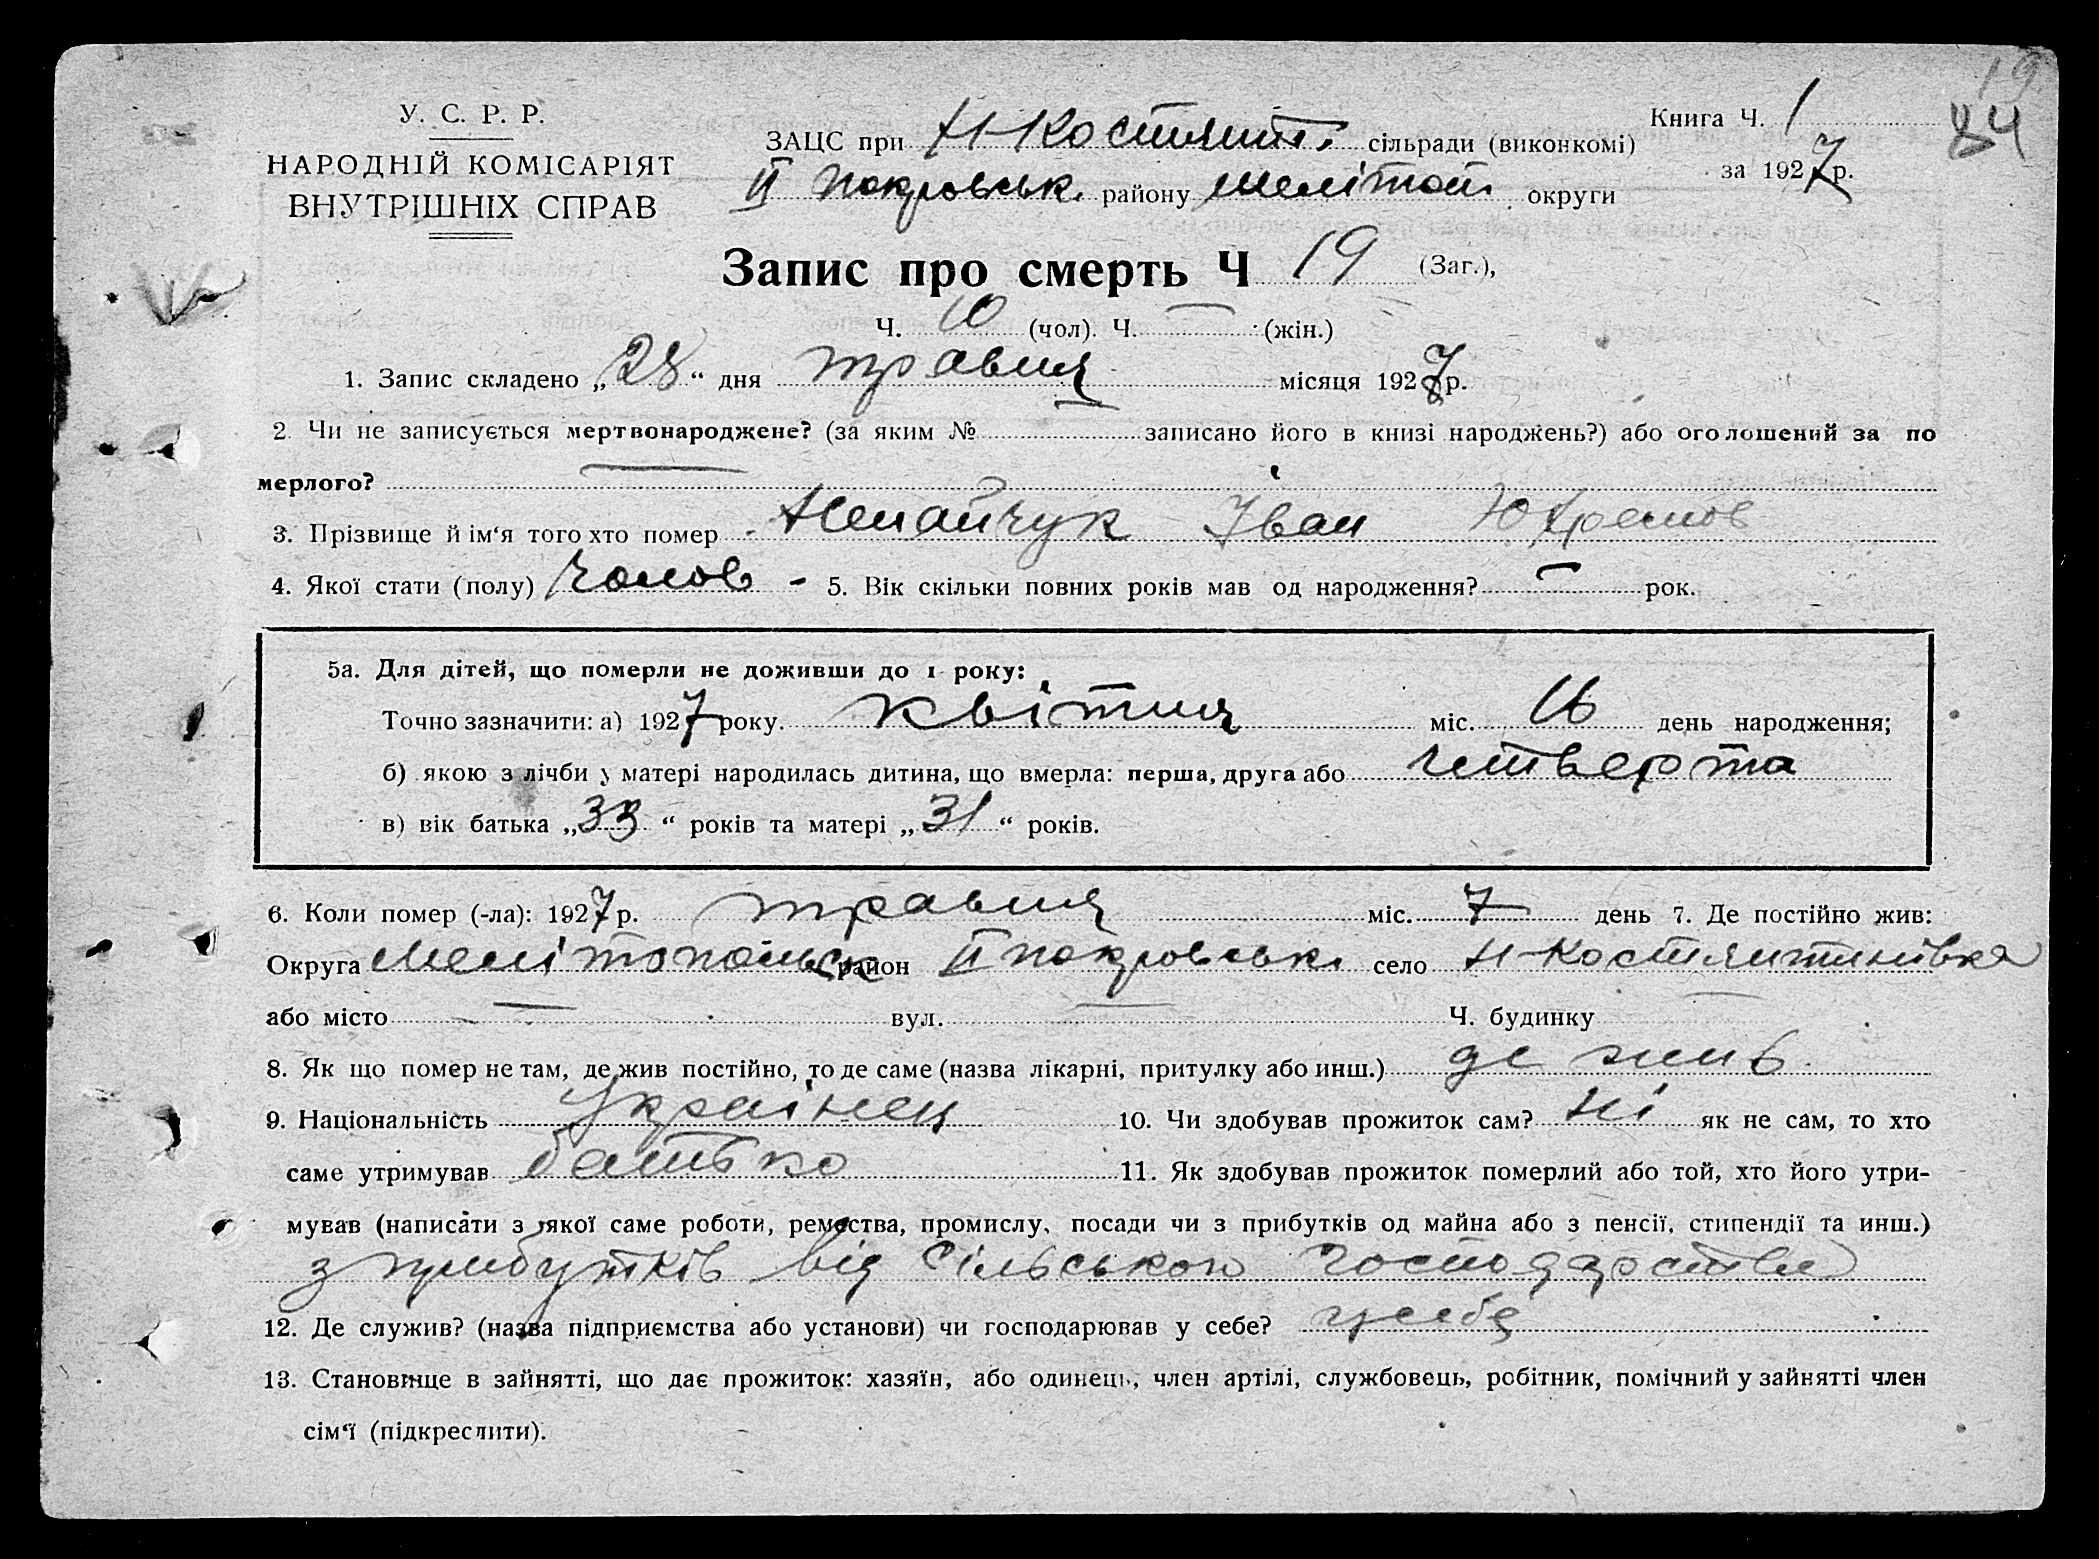 19
84
У. С. Р. Р.
НАРОДНІЙ КОМІСАРІЯТ
ВНУТРІШНІХ СПРАВ
ЗАЦС при Н-Костянт. сільради (виконкомі)
Книга Ч. 1
за 1927 р.
II Покровськ. району Мелітоп. округи
Запис про смерть Ч 19 (Заг.),
Ч. 10 (чол). Ч. — (жін.)
1. Запис складено „28“ дня травня місяця 1927 р.
2. Чи не записується мертвонароджене? (за яким № записано його в книзі народжень?) або оголошений за по
мерлого? —
3. Прізвище й ім‘я того хто помер Іван
4. Якої стати (полу) Чолов - 5. Вік скільки повних років мав од народження? — рок.
5а. Для дітей, що померли не доживши до 1 року:
Точно зазначити: а) 1927 року. квітня міс. 16 день народження;
б) якою з лічби у матері народилась дитина, що вмерла: перша, друга або четверта
в) вік батька „33“ років та матері „31“ років.
6. Коли помер (-ла): 1927 р. травня міс. 7 день 7. Де постійно жив:
Округа Мелітопольськ район II Покровськ. село Н-Костянтинівка
або місто — вул. — Ч. будинку —
8. Як що помер не там, де жив постійно, то де саме (назва лікарні, притулку або инш.) де жив
9. Національність Українець 10. Чи здобував прожиток сам? Ні як не сам, то хто
саме утримував батько 11. Як здобував прожиток померлий або той, хто його утри-
мував (написати з якої саме роботи, ремества, промислу, посади чи з прибутків од майна або з пенсії, стипендії та инш.)
з прибутків від сільського господарства
12. Де служив? (назва підприємства або установи) чи господарював у себе? у себе
13. Становище в зайнятті, що дає прожиток: хазяїн, або одинець, член артілі, службовець, робітник, помічний у зайнятті член
сім‘ї (підкреслити).